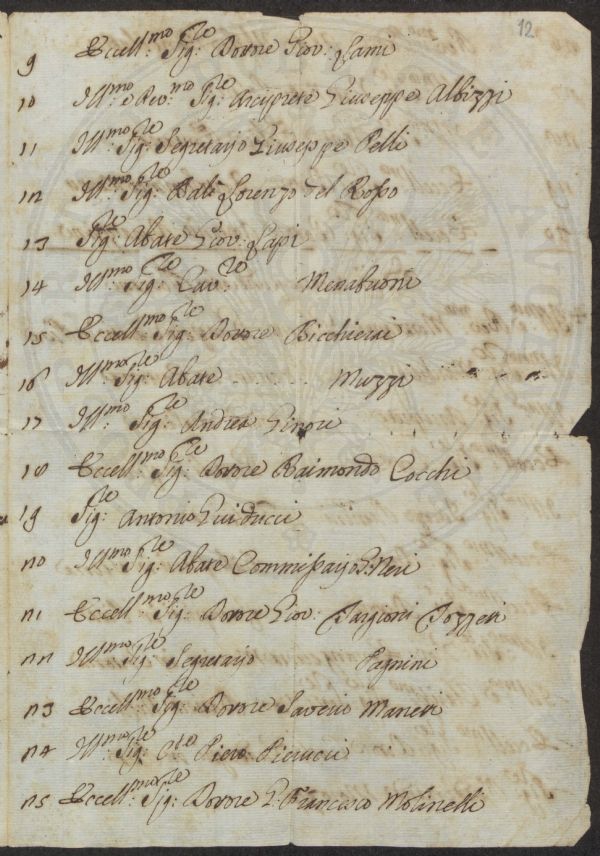 12
9 Eccell:mo Sig:re Dottore Giov: Lami
10 Ill:mo e Rev:mo Sig:re Arciprete Giuseppe Albizzi
11 Ill:mo Sig:re Segretario Giuseppe Pelli
12 Ill:mo Sig:re Balì Lorenzo del Rosso
13 Sig:re Abate Giov: Lapi
14 Ill:mo Sig:re Cav:re Menabuoni
15 Eccell:mo Sig:re Dottore Bicchierai
16 Ill:mo Sig:re Abate ........ Muzzi
17 Ill:mo Sig:re Andrea Ginori
18 Eccell:mo Sig:re Dottore Raimondo Cocchi
19 Sig:re Antonio Guiducci
20 Ill:mo Sig:re Abate Commissario Neri
21 Eccell:mo Sig:re Dottore Giov: Targioni Tozzetti
22 Ill:mo Sig:re Segretario Pagnini
23 Eccell:mo Sig:re Dottore Saverio Manetti
24 Ill:mo Sig:re Piero
25 Eccell:mo Sig:re Dottore G: Francesco Molinelli